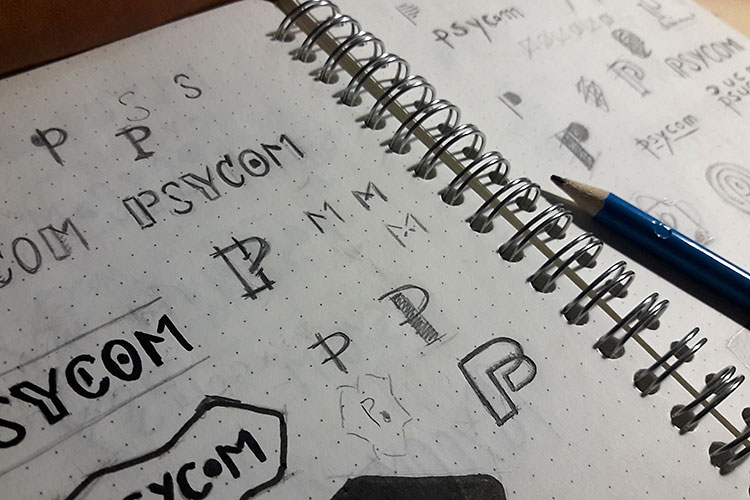 S S
P P
COM PSYCOM
M M M
P
P
P P
SYCOM
P.
SYCOM
psycom
P
P PSYCOM
P
psycom